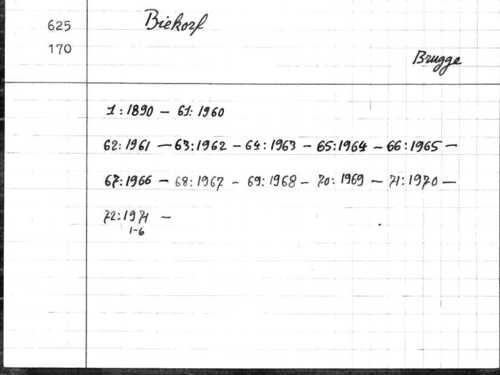 625
Biekorf
170
Brugge
1:1890 - 61:1960
62:1961 - 63:1962 - 64:1963 - 65:1964 - 66:1965 -
67:1966 - 68:1967 - 69:1968 - 70:1969 - 71:1970 -
72:1971 -
1-6